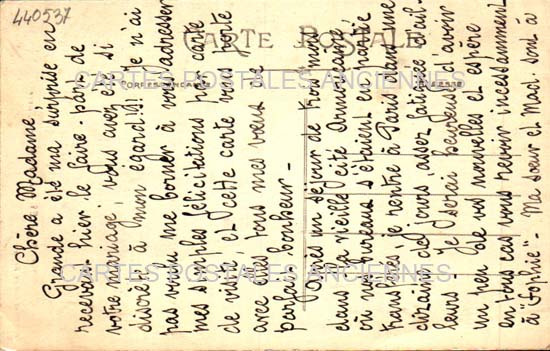 440537
CARTE POSTALE
CORRESPONDANCE
ADRESSE
CARTES POSTALES ANCIENNES
CARTES POSTALES ANCIENNES
Chère Madame
Grande a été ma surprise en
recevant hier le faire-part de
votre mariage, vous avez été si
discrète à mon égard!!! Je n'ai
pas voulu me borner à vous adresser
mes simples félicitations par carte
de visite et cette carte vous porte
avec elles tous mes vœux de
parfait bonheur -
Après un séjour de trois mois
dans la vieille cité
où nos bureaux s'étaient en partie
je rentre à Paris dans une
dizaine de jours assez fatiguée d'ail-
leurs. Je serai heureuse d'avoir
un peu de vos nouvelles et espère
en tous cas vous revoir incessamment
à "Sophie" - Ma sœur et Mad. sont à